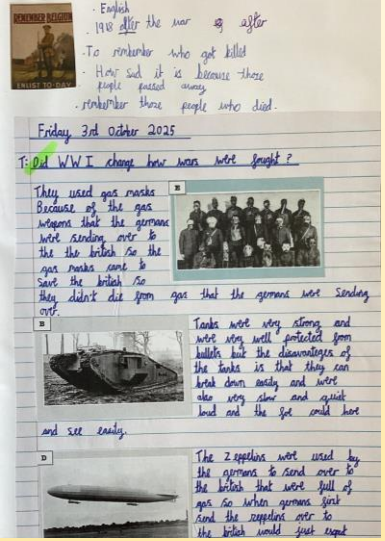 REMEMBER BELGIUM
ENLIST TO-DAY
· English
· 1918 after the war after
· To rembember who got killed
· How sad it is because those
people passed away
· rembember those people who died.
Friday 3rd October 2025
T: Did WW I change how wars were fought?
They used gas masks
Because of the gas
weapons that the germans
were sending over to
the the british so the
gas masks came to
save the british so
they didn't die from gas that the germans were sending
over.
E
B
Tanks were very strong and
were very well protected from
bullets but the disavantages of
the tanks is that they can
break down easily and were
also very slow and quiet
loud and the foe could here
and see easily.
D
The Zeppelins were used by
the germans to send over to
the british that were full of
gas so when germans first
send the zeppelins over to
the british would just